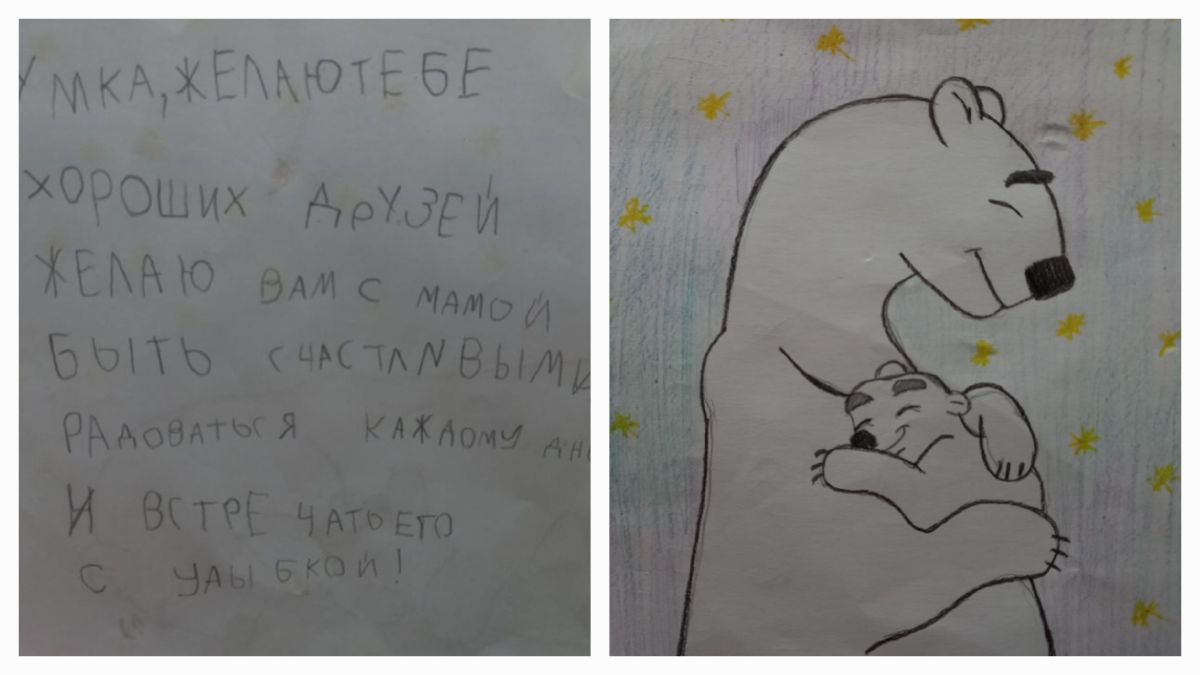 УМКА, ЖЕЛАЮ ТЕБЕ
ХОРОШИХ ДРУЗЕЙ
ЖЕЛАЮ ВАМ С МАМОЙ
БЫТЬ СЧАСТЛИВЫМИ
РАДОВАТЬСЯ КАЖДОМУ
И ВСТРЕЧАТЬ ЕГО
С УЛЫБКОЙ!